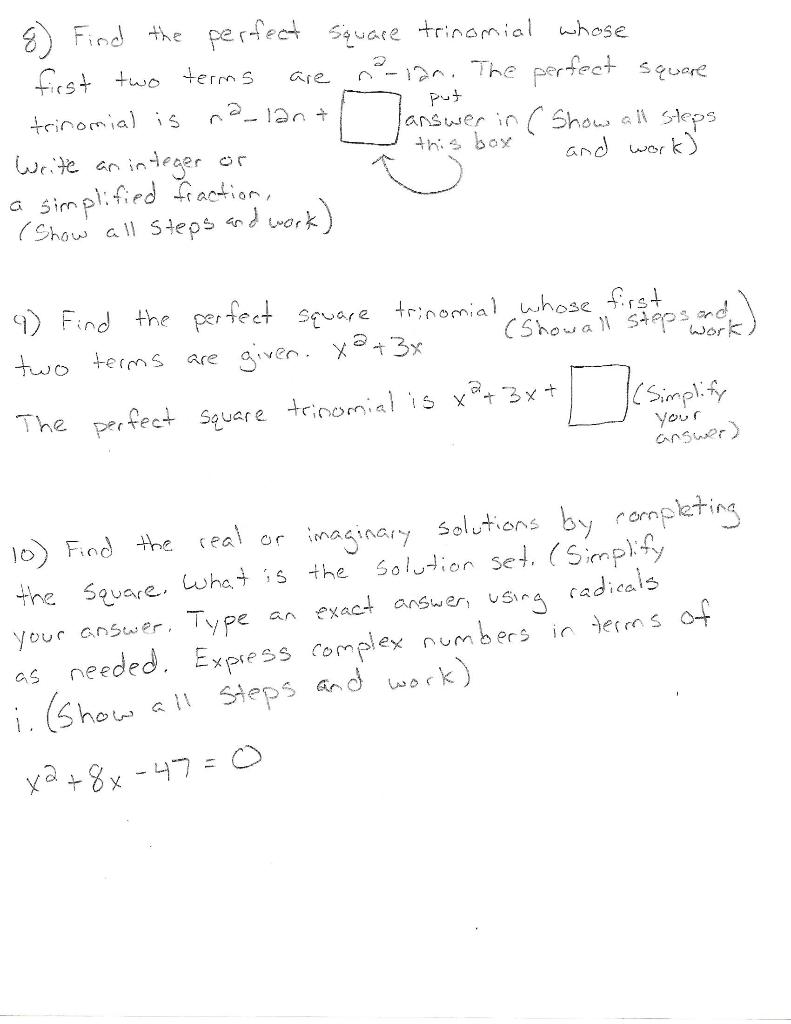 8) Find the perfect square trinomial whose
first two terms are n²-12n. The perfect square
trinomial is n²-12n + put answer in this box (Show all steps and work)
Write an integer or
a simplified fraction.
(Show all steps and work)
9) Find the perfect square trinomial whose first
two terms are given. x²+3x (Show all steps and work)
The perfect square trinomial is x²+3x+ (Simplify your answer)
10) Find the real or imaginary solutions by completing
the square. What is the solution set. (Simplify
your answer. Type an exact answer, using radicals
as needed. Express complex numbers in terms of
i. (Show all steps and work)
x²+8x-47=0